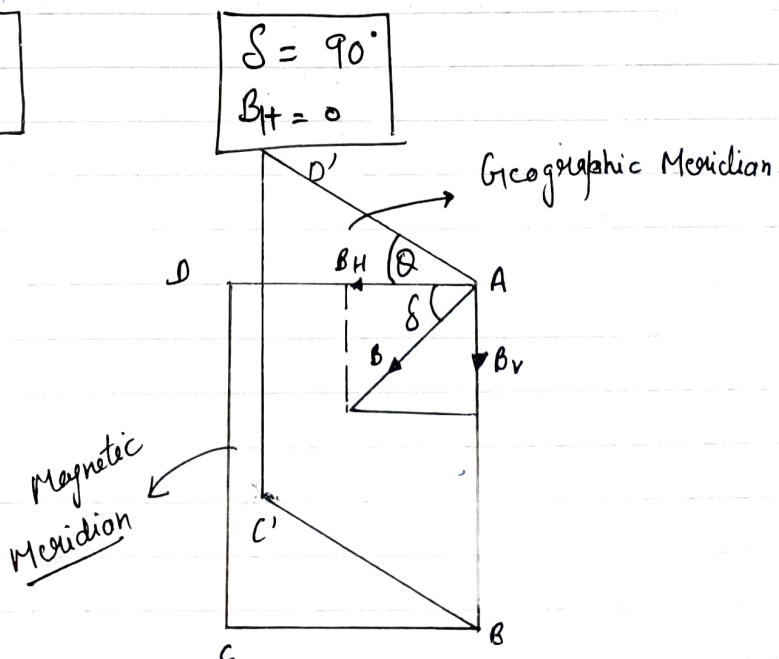 δ = 90°
BH = 0
D'
Geographic Meridian
D
BH
θ
A
δ
B
Bv
Magnetic
Meridian
C'
C
B